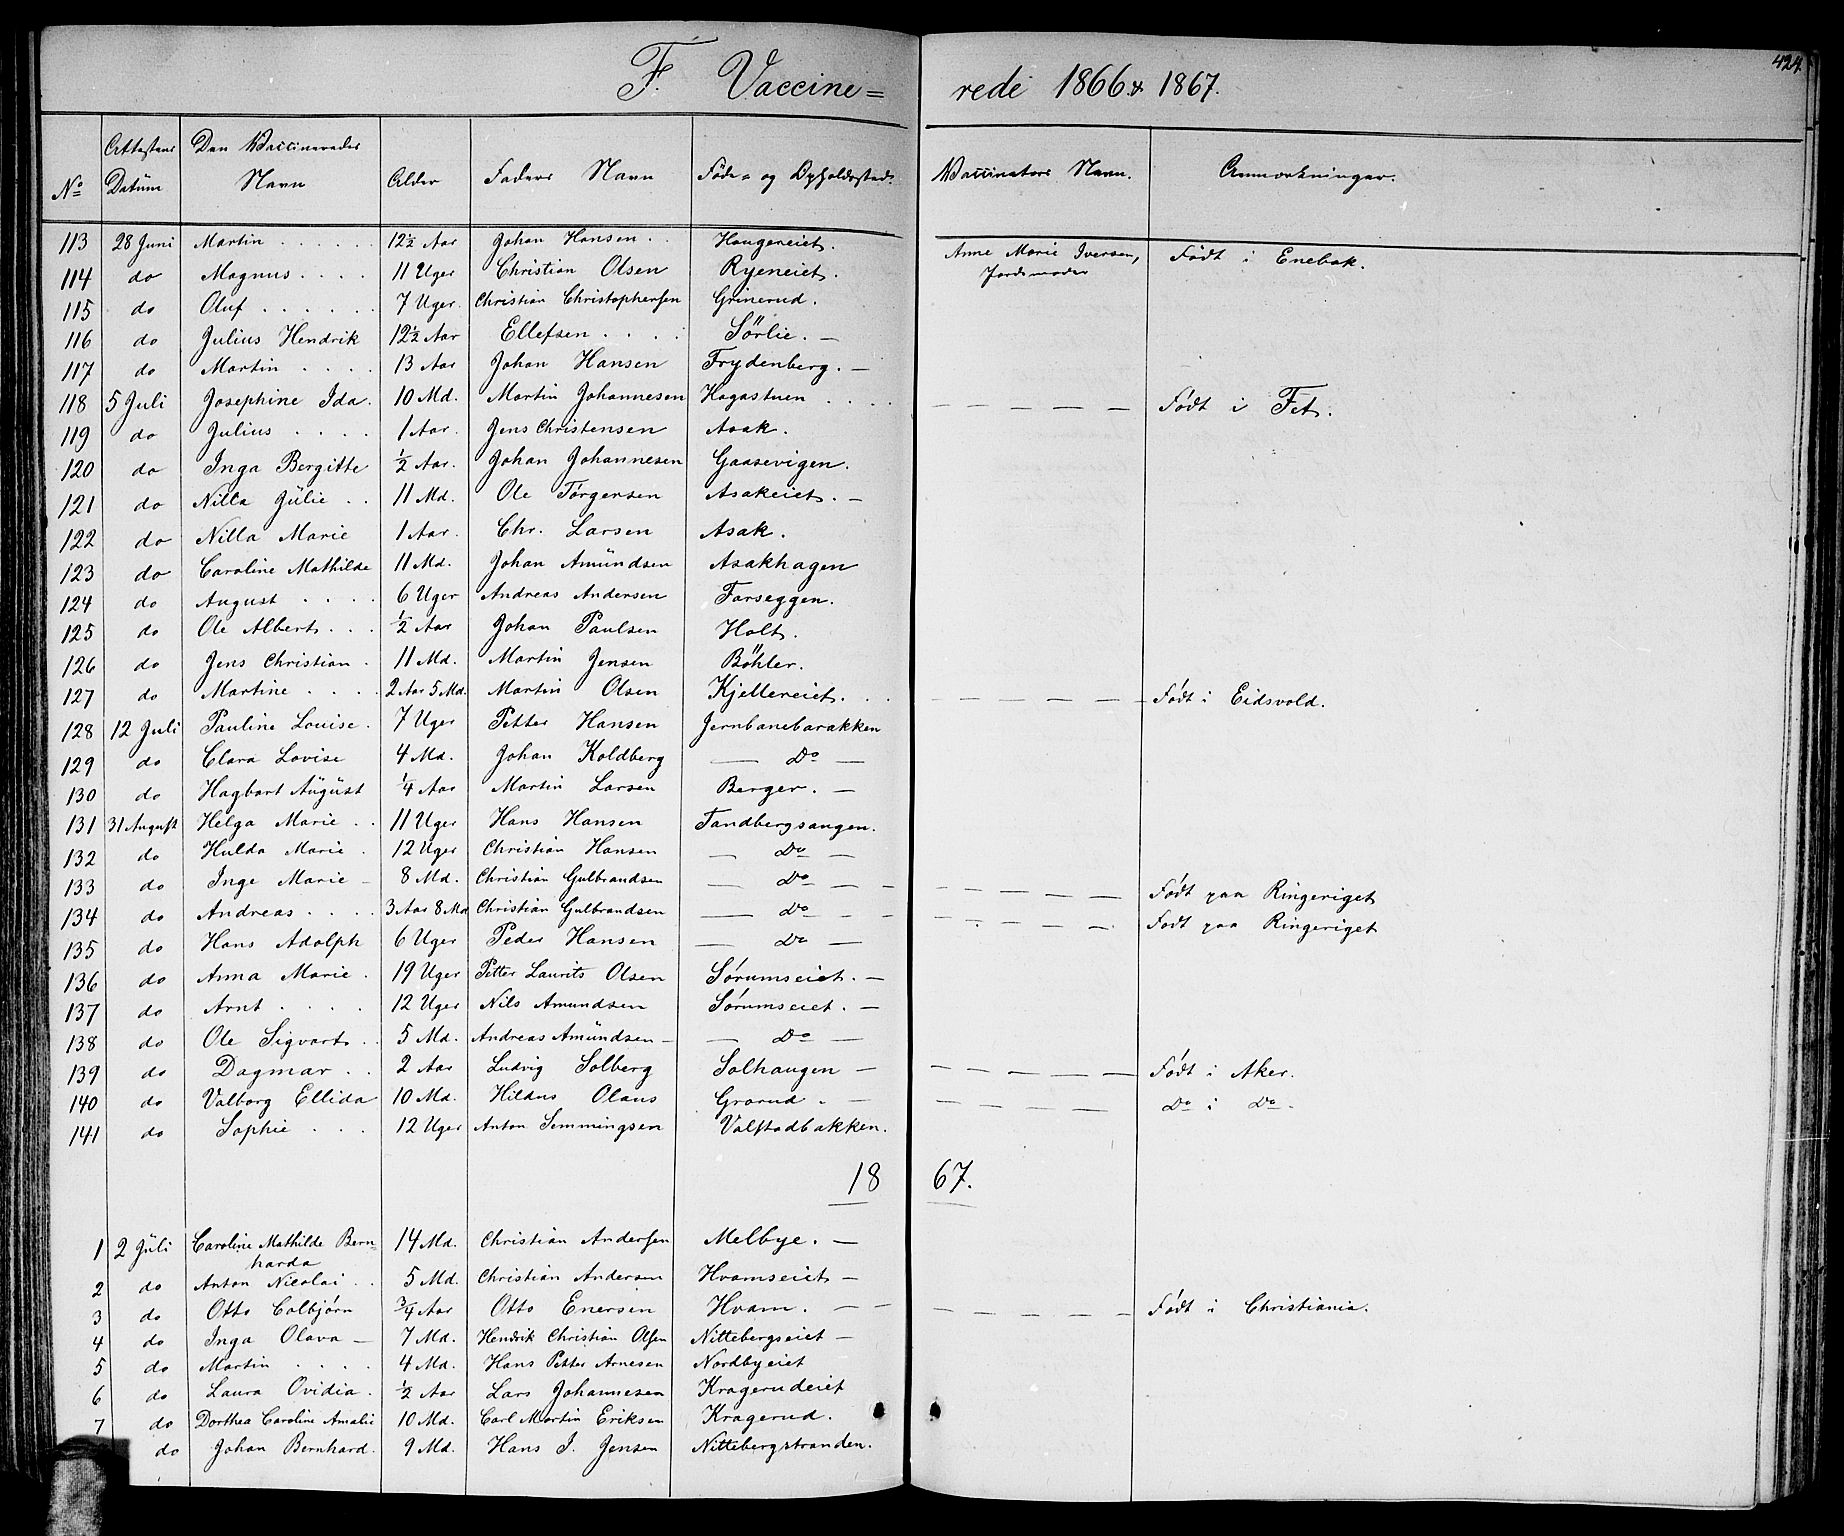 424.
F. Vaccine= rede 1866 & 1867.
No Attestens Datum Den Vaccineredes Navn Alder Faders Navn Føde- og Opholdssted. Vaccinators Navn. Anmærkninger.
113 28 Juni Martin . . . . . 12½ Aar Johan Hansen . . Haugereiet. Anne Marie Iversen, Jordemoder Født i Enebak.
114 do Magnus . . . . 11 Uger Christian Olsen Ryeneiet.
115 do Oluf . . . . . . 7 Uger. Christian Christophersen Grinerud.
116 do Julius Hendrik 12½ Aar Ellefsen . . . . Sörlie. —
117 do Martin . . . . 13 Aar Johan Hansen Frydenberg. —
118 5 Juli Josephine Ida. 10 Md. Martin Johannesen Hagastuen . . . . — — — — — Født i Fet.
119 do Julius . . . . 1 Aar. Jens Christensen Asak.
120 do Inga Bergitte ½ Aar. Johan Johannesen Gaasevigen.
121 do Nilla Jülie . . 11 Md. Ole Törgersen Asakeiet. —
122 do Nilla Marie 1 Aar. Chr. Larsen Asak.
123 do Caroline Mathilde 11 Md. Johan Amündsen Asakhagen
124 do August . . . . 6 Uger Andreas Andersen Farseggen.
125 do Ole Albert . . . ½ Aar Johan Paulsen Holt.
126 do Jens Christian . 11 Md. Martin Jensen Böhler.
127 do Martine . . . . 2 Aar 5 Md. Martin Olsen Kjellereiet. . . — — — — — Født i Eidsvold.
128 12 Juli Pauline Louise . 7 Uger Petter Hansen Jernbanebarakken
129 do Clara Lovise 4 Md. Johan Koldberg — Do —
130 do Hagbart Aügüst ¼ Aar Martin Larsen Berger. —
131 31 August Helga Marie . . 11 Uger Hans Hansen Tandbergsangen.
132 do Hulda Marie . 12 Uger Christian Hansen — Do —
133 do Inge Marie — 8 Md. Christian Gulbrandsen — Do — — — — — — Født paa Ringeriget
134 do Andreas . . . . 3 Aar 8 Md Christian Gulbrandsen — Do — — — — — — Født paa Ringeriget
135 do Hans Adolph 6 Uger Peder Hansen — Do —
136 do Anna Marie . 19 Uger Petter Laurits Olsen Sørumseiet. —
137 do Arnt . . . . 12 Uger Nils Amundsen Sørumseiet. —
138 do Ole Sigvart . . 5 Md. Andreas Amündsen — — Do —
139 do Dagmar . . 2 Aar Ludvig Solberg Solhaugen — — — — — — Født i Aker.
140 do Valborg Ellida 10 Md. Hildus Olaus Grorud . — — — — — Do i Do.
141 do Sophie . . . 12 Uger Anton Semmingsen Valstadbakken.
1867.
1 2 Jüli Caroline Mathilde Bern=harda 14 Md. Christian Andersen Melbye. —
2 do Anton Nicolai . . 5 Md. Christian Andersen Hvamseiet —
3 do Otto Colbjørn ¾ Aar Otto Enersen Hvam. — — — — — — — Født i Christiania.
4 do Inga Olava — 7 Md. Hendrik Christian Olsen Nittebergseiet —
5 do Martin . . . . 4 Md. Hans Petter Arnesen Nordbyeiet
6 do Laura Ovidia . ½ Aar Lars Johannesen Krageruдeiet
7 do Dorthea Caroline Amalie 10 Md. Carl Martin Eriksen Kragerud.
do Johan Bernhard. 9 Md. Hans J. Jensen Nittebergstranden.